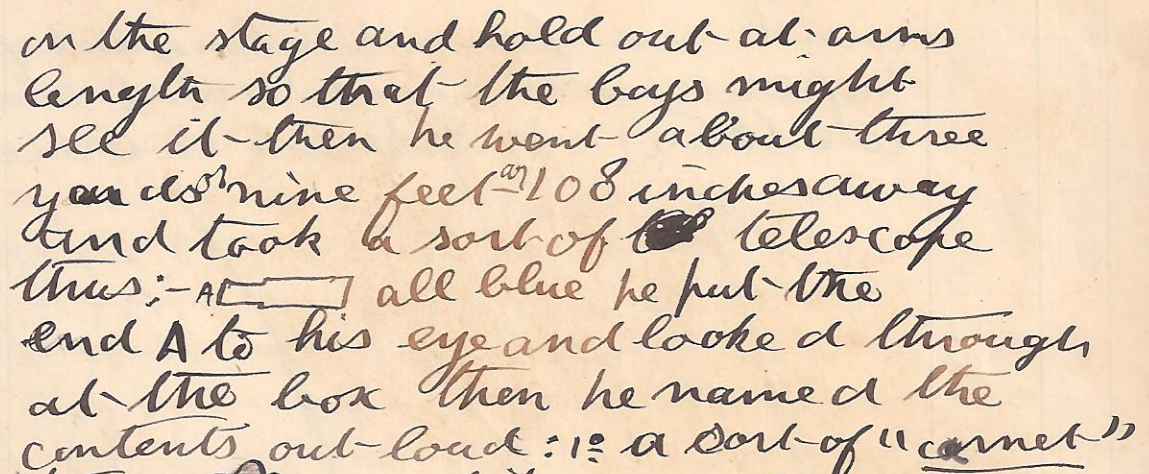 on the stage and hold out at arms
length so that the boys might
see it then he went about three
yards or nine feet or 108 inches away
and took a sort of telescope
thus:- A all blue he put the
end A to his eye and looked through
at the box then he named the
contents out loud: 1º a sort of "carnet"